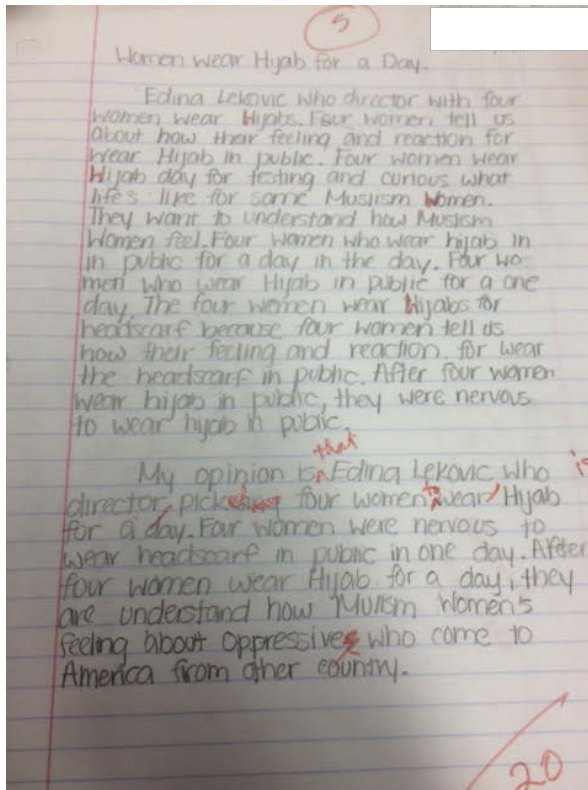 5
Women wear Hijab for a Day.
Edina Lekovic who director with four
women wear Hijabs. Four women tell us
about how their feeling and reaction for
wear Hijab in public. Four women wear
Hijab day for testing and curious what
life's like for some Muslism Women.
They want to understand how Muslism
Women feel. Four women who wear hijab in
in public for a day in the day. Four wo-
men who wear Hijab in public for a one
day. The four women wear Hijabs for
headscarf because four women tell us
how their feeling and reaction. for wear
the headscarf in public. After four women
wear hijab in public, they were nervous
to wear hijab in public.
that
My opinion is Edina Lekovic who is
director, pick four women to wear Hijab
for a day. Four women were nervous to
wear headscarf in public in one day. After
four women wear Hijab for a day, they
are understand how Mulism Women's
feeling about oppressive who come to
America from other country.
20